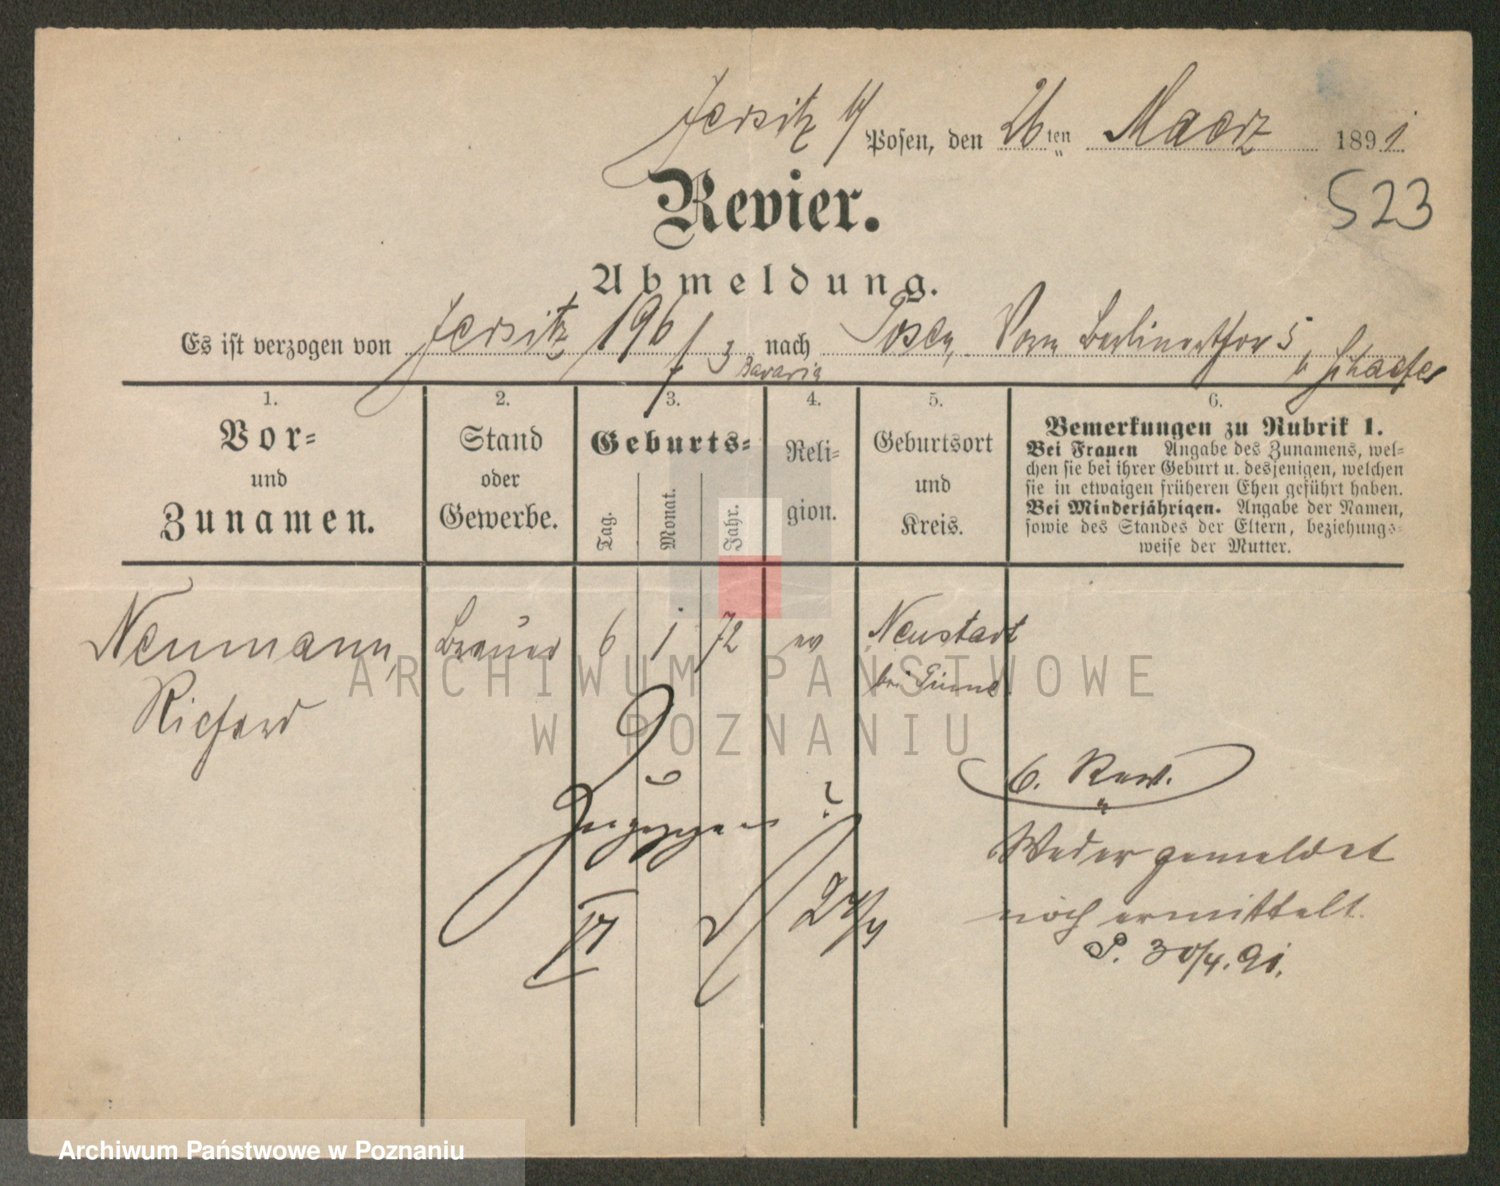 Jersitz b/ Posen, den 26ten Maerz 1891
523
Revier.
Abmeldung.
Es ist verzogen von Jersitz 196/3 nach Posen Vorm Berlinerthor 5
Bavaria b. Schaefer
1.
Vor-
und
Zunamen.
2.
Stand
oder
Gewerbe.
3.
Geburts-
Tag.
Monat.
Jahr.
4.
Reli-
gion.
5.
Geburtsort
und
Kreis.
6.
Bemerkungen zu Rubrik 1.
Bei Frauen Angabe des Zunamens, wel-
chen sie bei ihrer Geburt u. desjenigen, welchen
sie in etwaigen früheren Ehen geführt haben.
Bei Minderjährigen. Angabe der Namen,
sowie des Standes der Eltern, beziehungs-
weise der Mutter.
Neumann, Brauer 6 1 72 ev Neustadt
Richard bei Pinne
6. Rev.
Zugezogen ?
Weder gemeldet
noch ermittelt.
IV 24/4
P. 30/4. 91.
ARCHIWUM PAŃSTWOWE
W POZNANIU
Archiwum Państwowe w Poznaniu